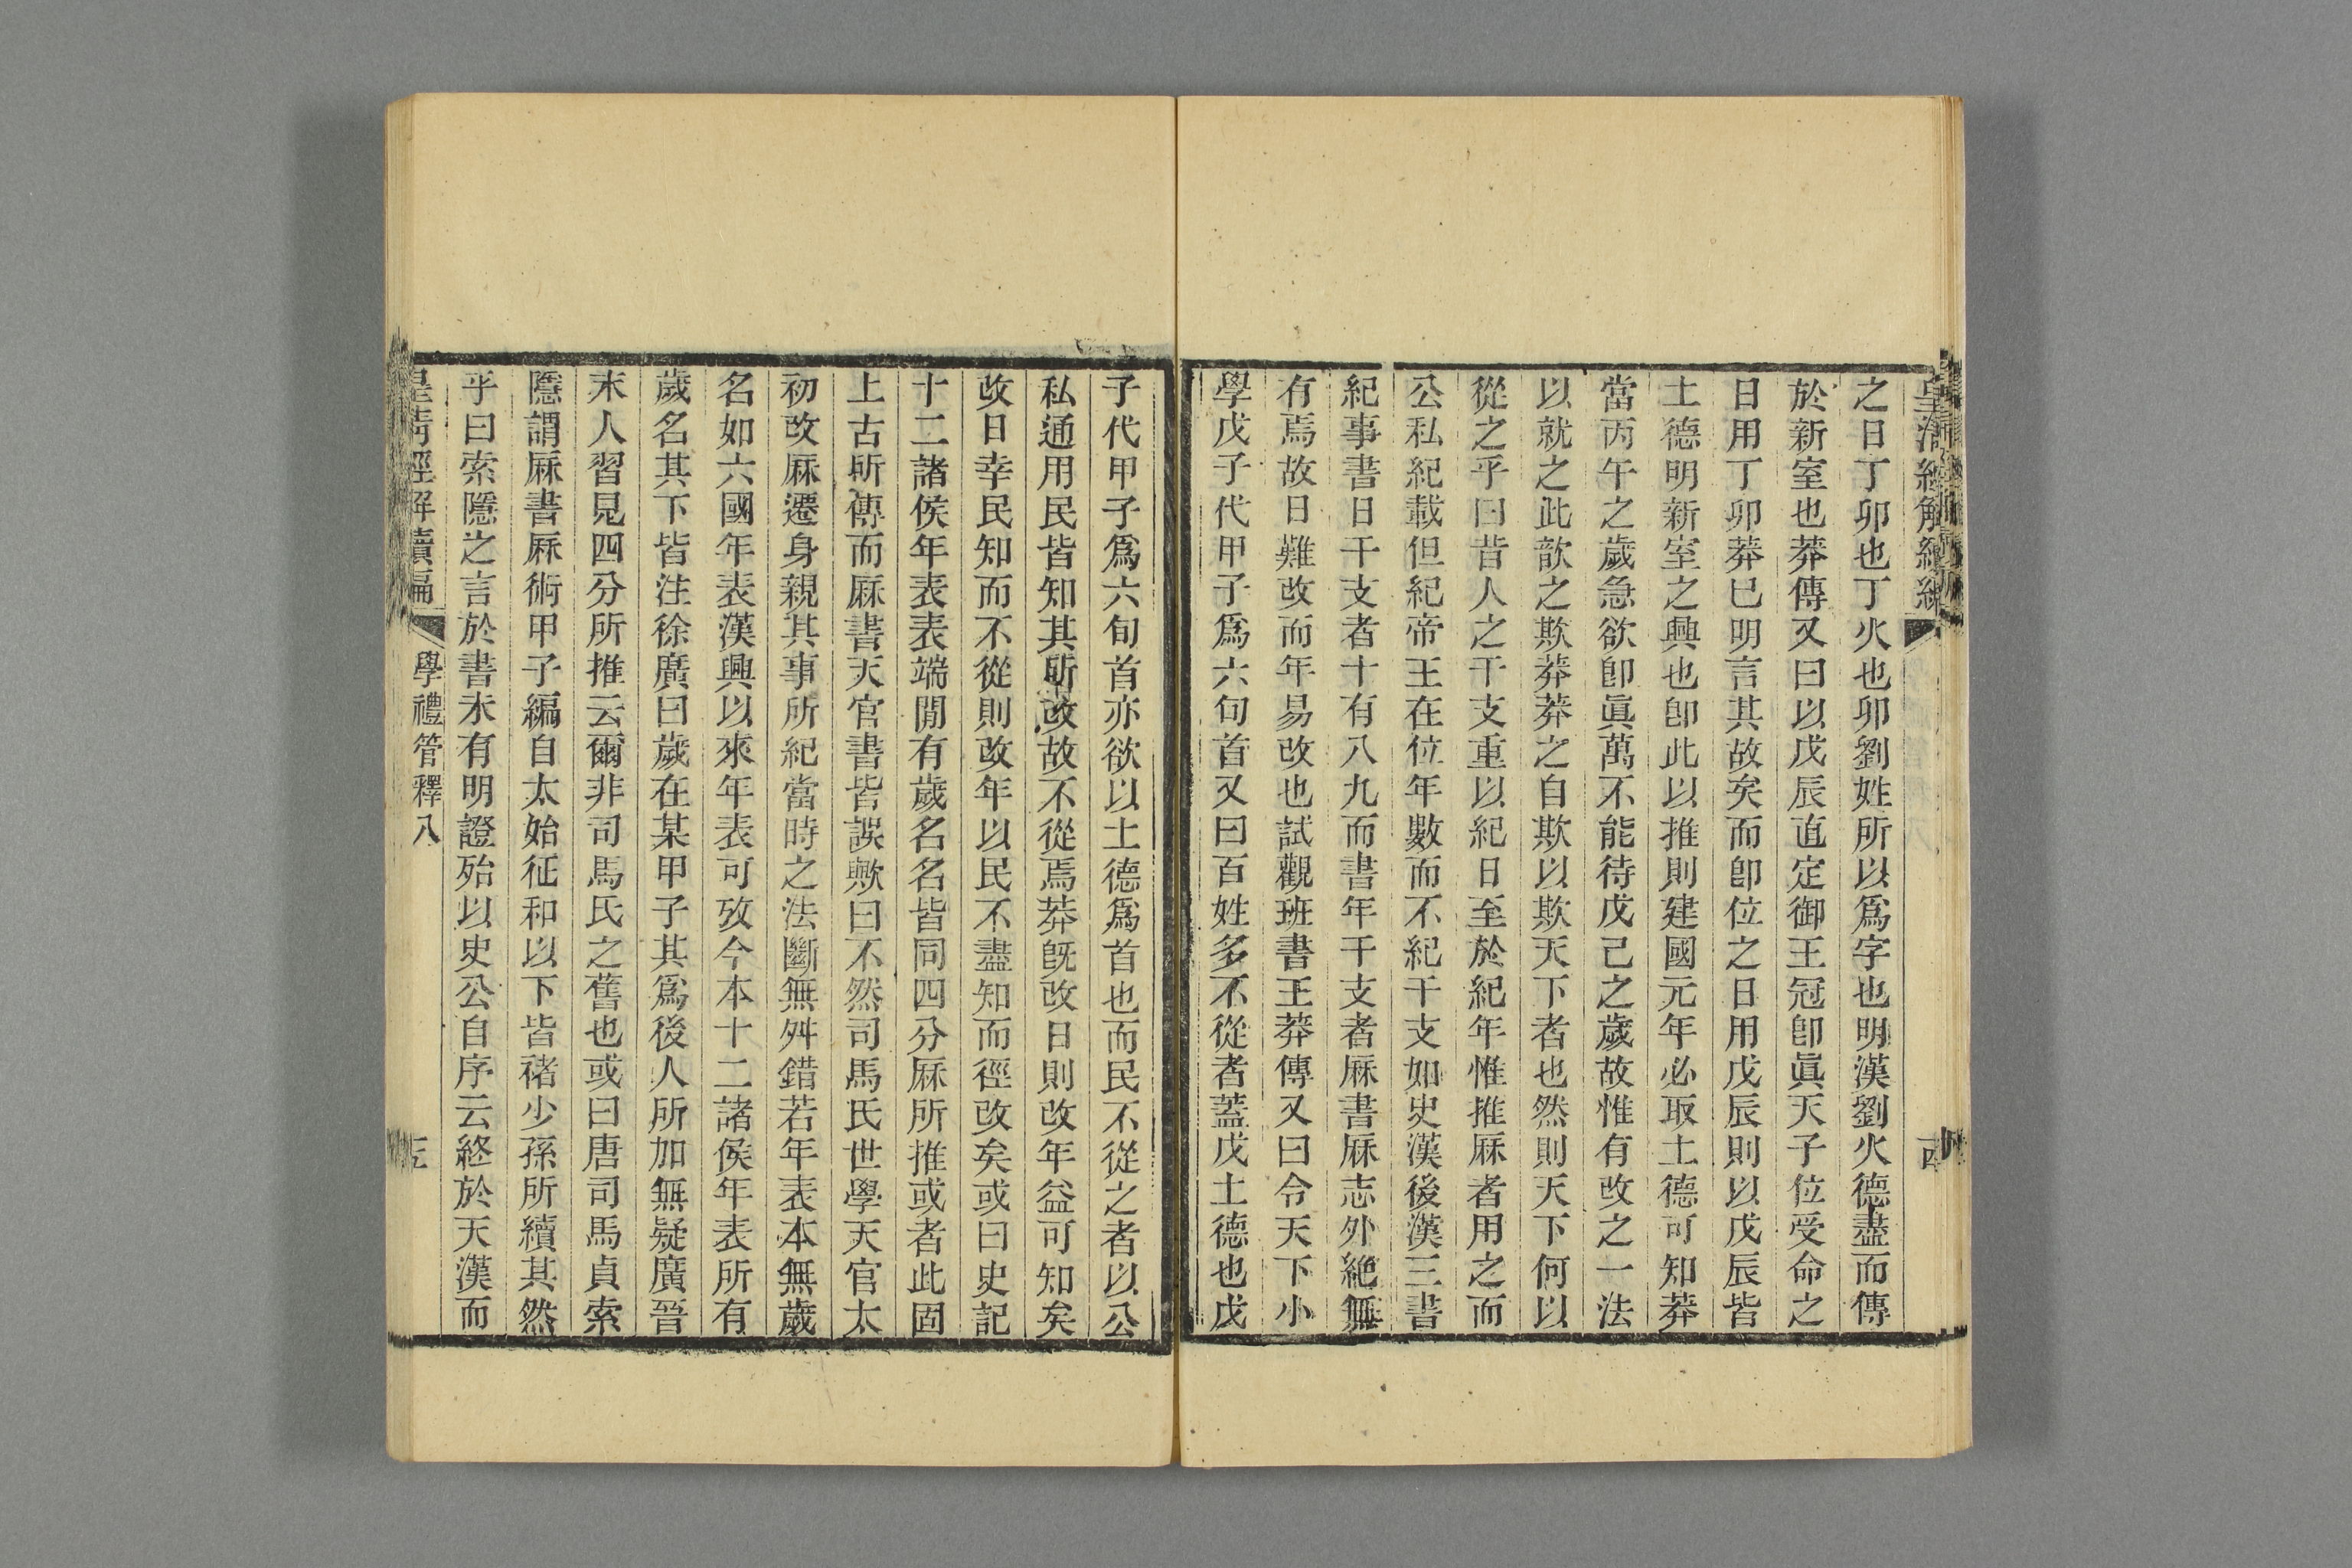 之日丁卯也丁火也卯劉姓所以爲字也明漢劉火德盡而傳
於新室也莽傳又曰以戊辰直定御王冠卽眞天子位受命之
日用丁卯莽已明言其故矣而卽位之日用戊辰則以戊辰皆
土德明新室之興也卽此以推則建國元年必取土德可知莽
當丙午之歲急欲卽眞萬不能待戊己之歲故惟有改之一法
以就之此歆之欺莽莽之自欺以欺天下者也然則天下何以
從之乎曰昔人之干支重以紀日至於紀年惟推厤者用之而
公私紀載但紀帝王在位年數而不紀干支如史漢後漢三書
紀事書日干支者十有八九而書年干支者厤書厤志外絶無
有焉故日難改而年易改也試觀班書王莽傳又曰令天下小
學戊子代甲子爲六旬首又曰百姓多不從者蓋戊土德也戊
子代甲子爲六旬首亦欲以土德爲首也而民不從之者以公
私通用民皆知其所改故不從焉莽旣改日則改年益可知矣
改日幸民知而不從則改年以民不盡知而徑改矣或曰史記
十二諸侯年表表端閒有歲名名皆同四分厤所推或者此固
上古所傳而厤書天官書皆誤歟曰不然司馬氏世學天官太
初改厤遷身親其事所紀當時之法斷無舛錯若年表本無歲
名如六國年表漢興以來年表可攷今本十二諸侯年表所有
歲名其下皆注徐廣曰歲在某甲子其爲後人所加無疑廣晉
末人習見四分所推云爾非司馬氏之舊也或曰唐司馬貞索
隱謂厤書厤術甲子編自太始征和以下皆褚少孫所續其然
乎曰索隱之言於書未有明證殆以史公自序云終於天漢而
皇清經解續編
學禮管釋八